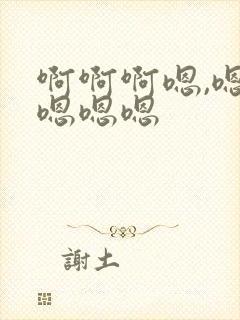 啊啊啊嗯,嗯
嗯嗯嗯
謝土